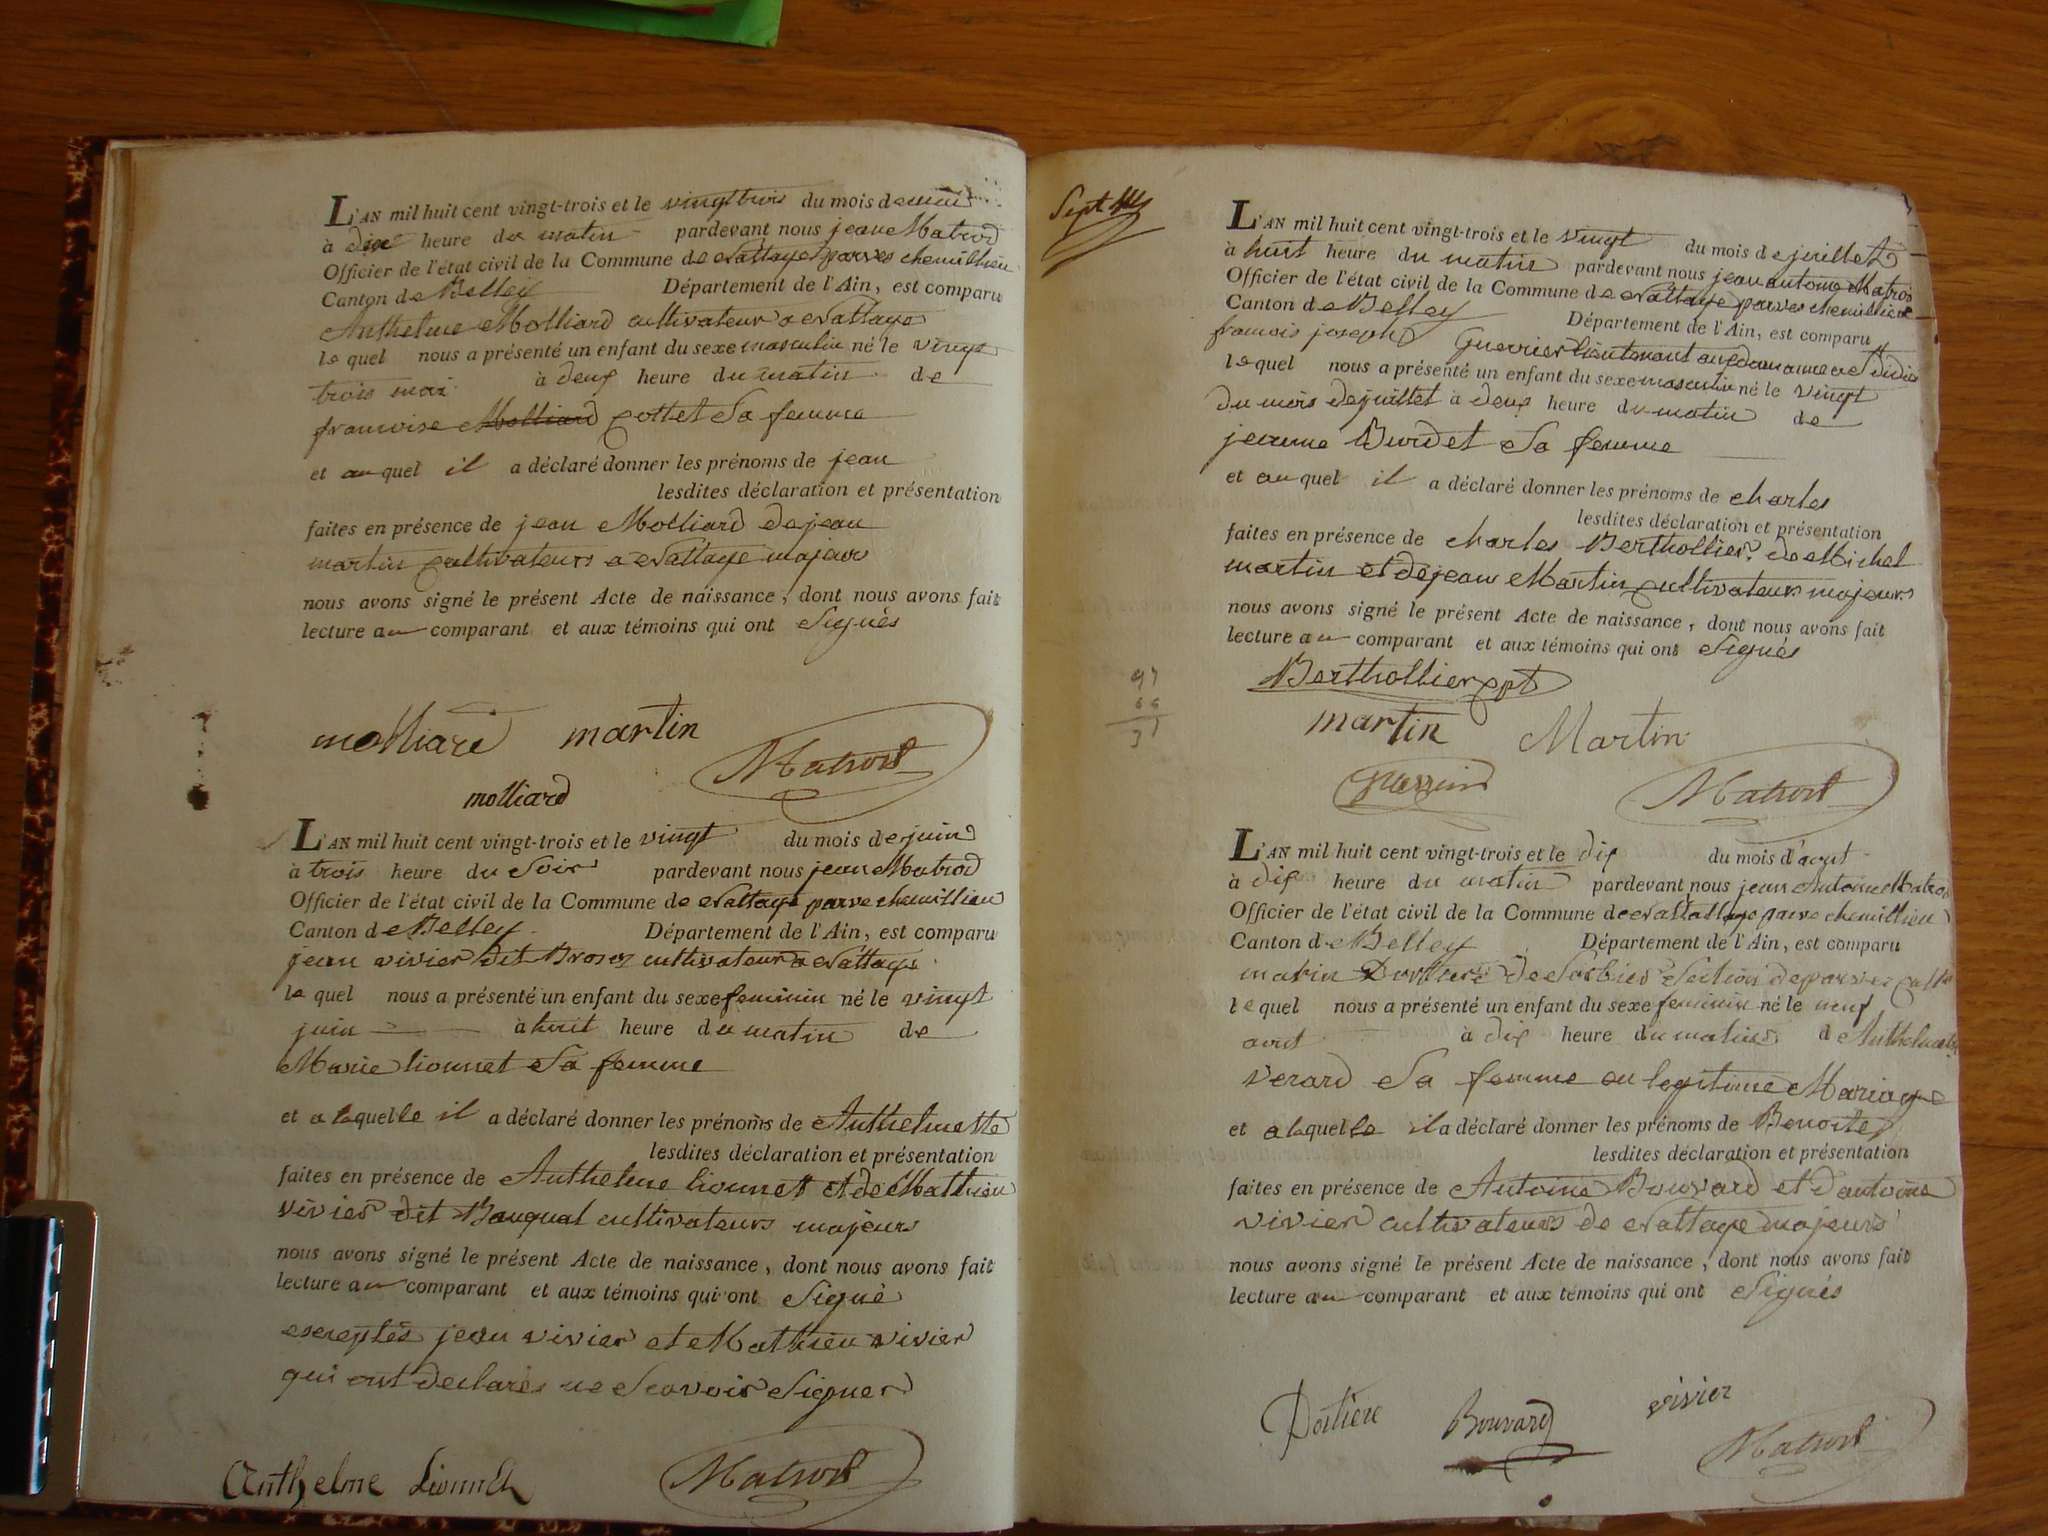 L'AN mil huit cent vingt-trois et le vingt trois du mois de mai
à dix heure du matin pardevant nous jean Matrod
Officier de l'état civil de la Commune de Nattage parves chemillieu
Canton de Belley Département de l'Ain, est comparu
Anthelme Molliard cultivateur a Nattage
lequel nous a présenté un enfant du sexe masculin né le vingt
trois mai à deux heure du matin de
francoise Molliard cottet Sa femme
et auquel il a déclaré donner les prénoms de jean
lesdites déclaration et présentation
faites en présence de jean Molliard de jean
martin cultivateurs a Nattage majeurs
nous avons signé le présent Acte de naissance, dont nous avons fait
lecture au comparant et aux témoins qui ont Signés
molliard martin
Matrod
molliard
L'AN mil huit cent vingt-trois et le vingt du mois de juin
à trois heure du Soir pardevant nous jean Matrod
Officier de l'état civil de la Commune de Nattage parve chemillieu
Canton de Belley Département de l'Ain, est comparu
jean vivier dit cultivateur a Nattage
lequel nous a présenté un enfant du sexe feminin né le vingt
juin à huit heure du matin de
Marie Lionnet Sa femme
et a laquelle il a déclaré donner les prénoms de Anthelmette
lesdites déclaration et présentation
faites en présence de Anthelme Lionnet et de Mathieu
vivier dit cultivateurs majeurs
nous avons signé le présent Acte de naissance, dont nous avons fait
lecture au comparant et aux témoins qui ont Signé
exceptés jean vivier et Mathieu vivier
qui ont declarés ne Scavoir Signer
Anthelme Lionnet
Matrod
L'AN mil huit cent vingt-trois et le vingt du mois de juillet
à huit heure du matin pardevant nous jean antoine Matrod
Officier de l'état civil de la Commune de Nattage parves chemillieu
Canton de Belley Département de l'Ain, est comparu
francois joseph Guerrier Lieutenant
lequel nous a présenté un enfant du sexe masculin né le vingt
du mois de juillet à deux heure du matin de
jeanne Burdet Sa femme
et auquel il a déclaré donner les prénoms de charles
lesdites déclaration et présentation
faites en présence de charles Berthollier de Michel
martin et de jean Martin cultivateurs majeurs
nous avons signé le présent Acte de naissance, dont nous avons fait
lecture au comparant et aux témoins qui ont Signés
Berthollier
martin Martin
Matrod
L'AN mil huit cent vingt-trois et le dix du mois d'aout
à dix heure du matin pardevant nous jean Antoine Matrod
Officier de l'état civil de la Commune de Nattage parve chemillieu
Canton de Belley Département de l'Ain, est comparu
de Sorbier Section de parves
lequel nous a présenté un enfant du sexe feminin né le neuf
aout à dix heure du matin d'Anthelmette
verard Sa femme en legitime Mariage
et a laquelle il a déclaré donner les prénoms de Benoite
lesdites déclaration et présentation
faites en présence de Antoine Bouvard et d'antoine
vivier cultivateurs de Nattage majeurs
nous avons signé le présent Acte de naissance, dont nous avons fait
lecture au comparant et aux témoins qui ont Signés
Bouvard vivier
Matrod